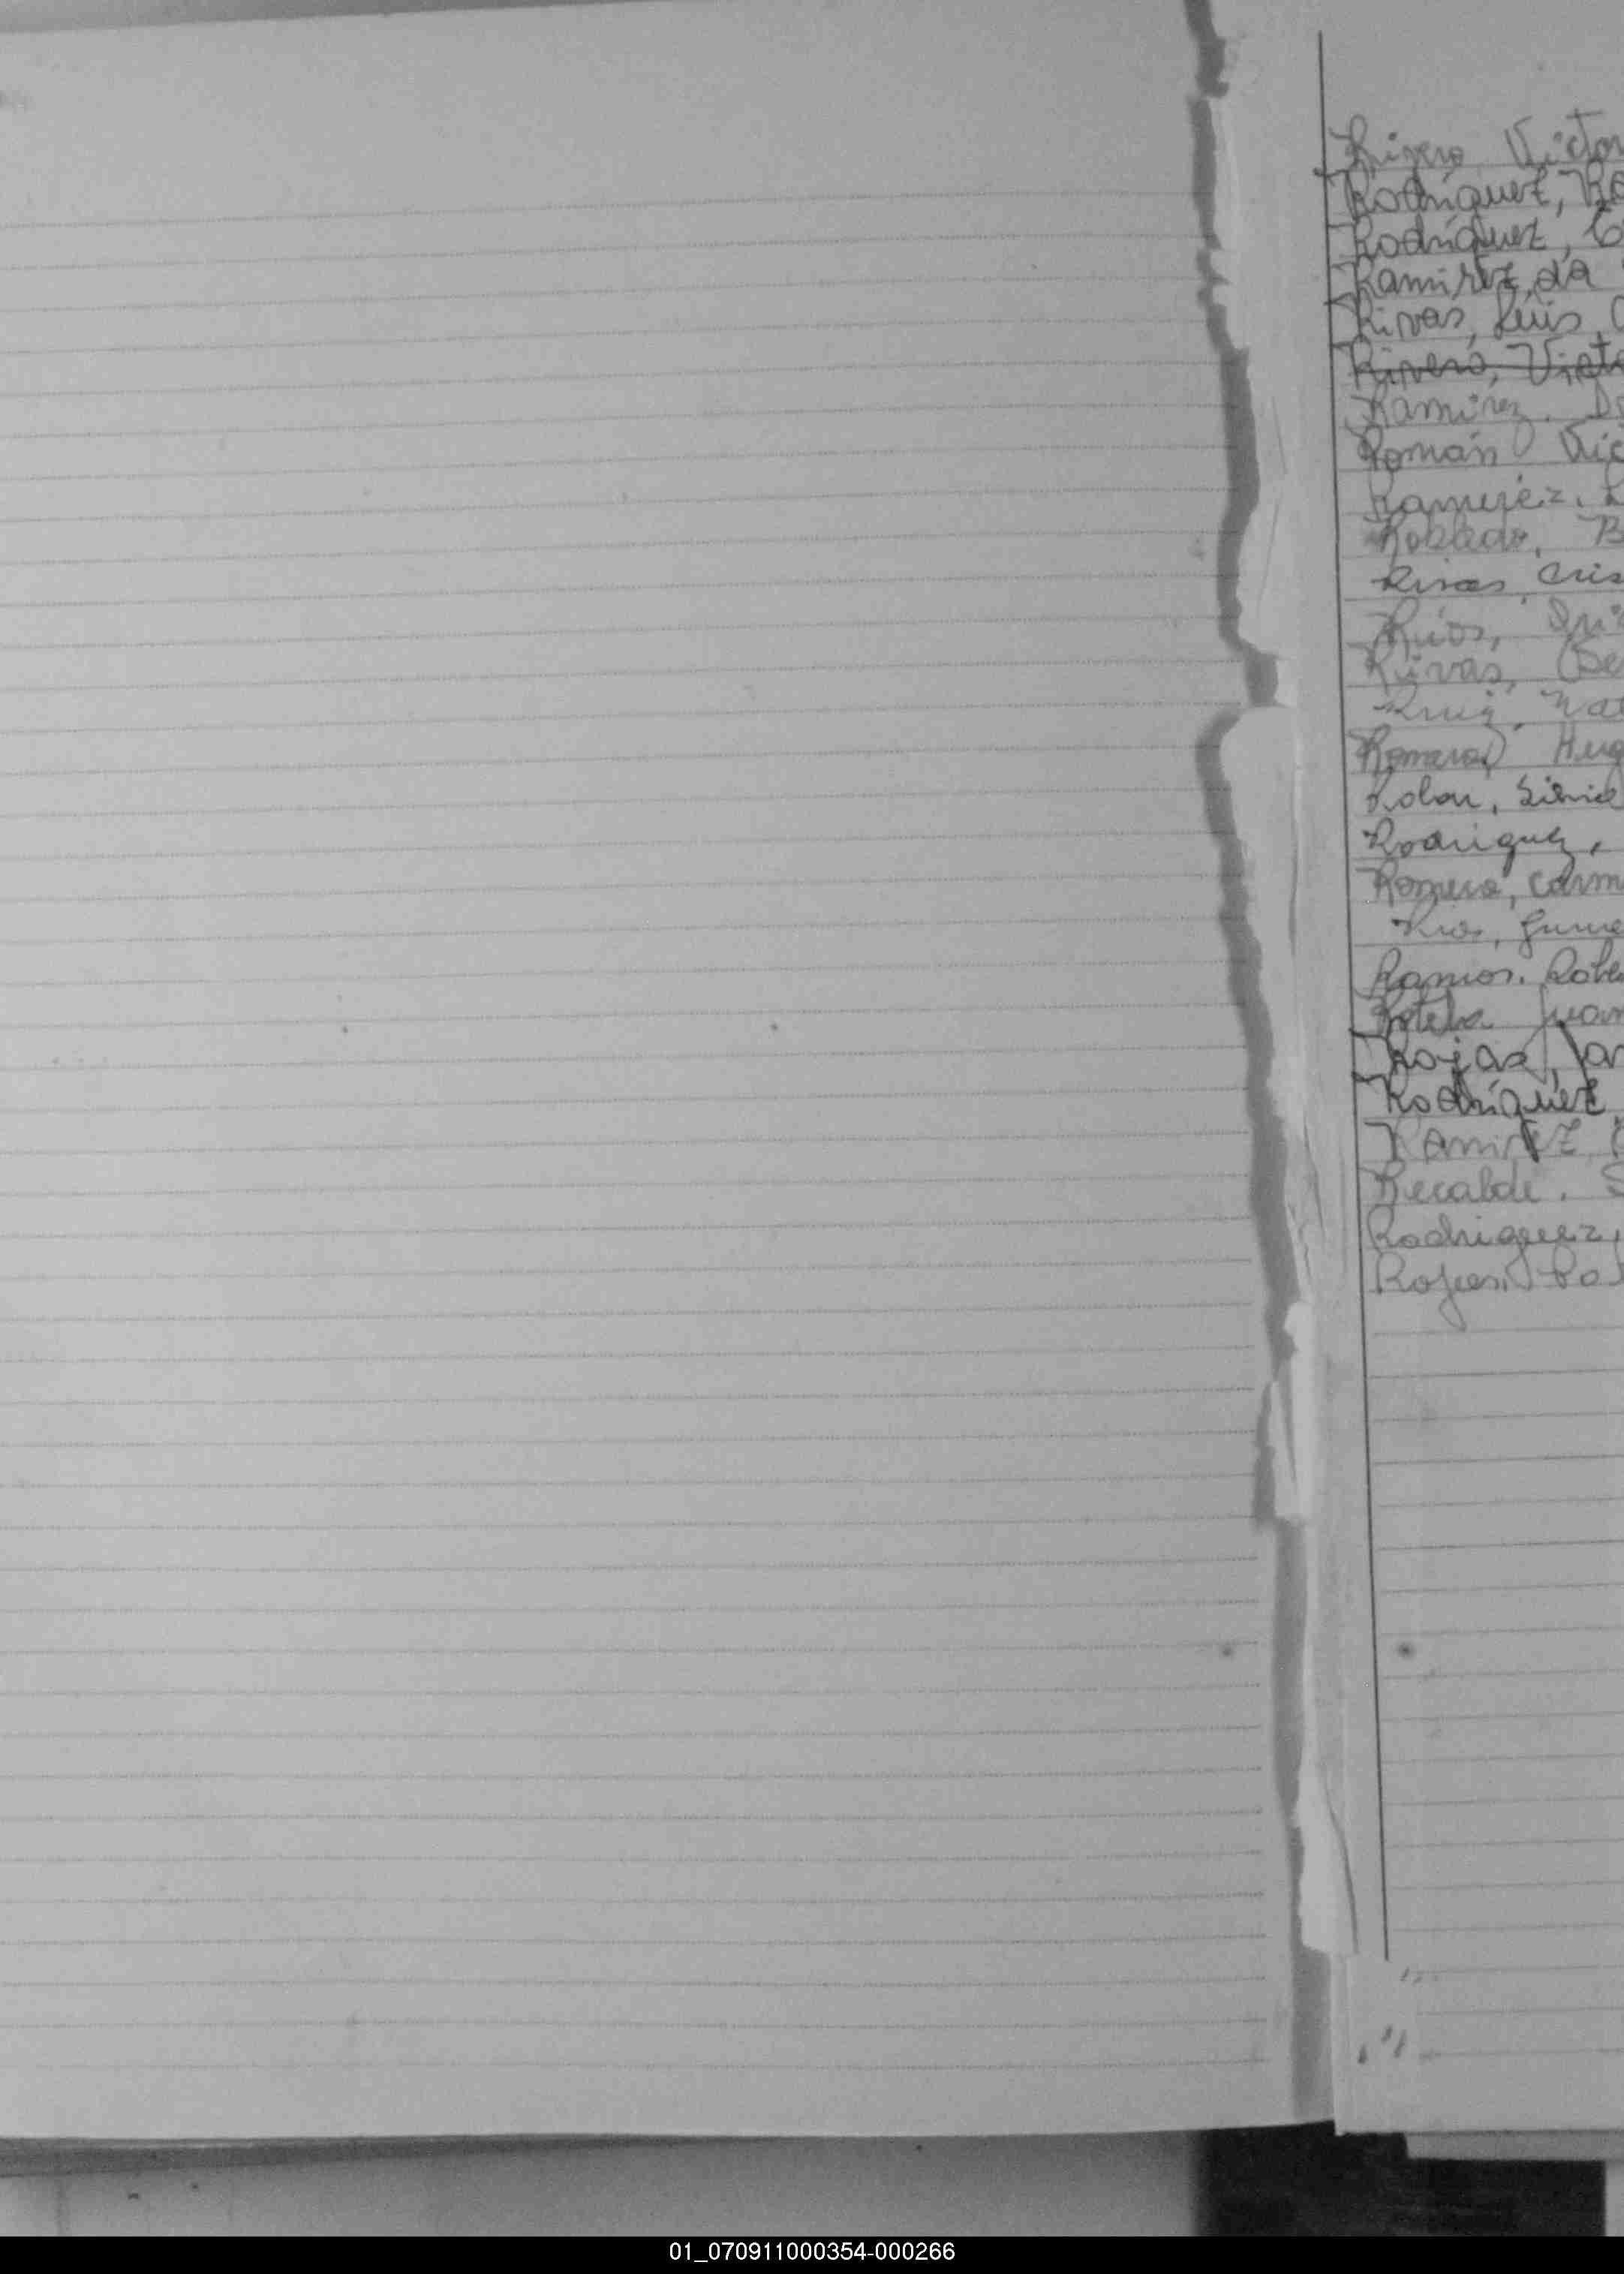 Rivero Victor
Rodríguez, Ro
Rodríguez, C
Ramírez, da
Rivas, Luis
Rivero, Victo
Ramírez. D
Román Vic
Ramírez.
Robledo, B
Rivas, Cris
Ríos,
Rivas,
Ruiz, Nat
Romero, Hug
Rolon, Silvia
Rodriguez,
Romero, Carm
Rios, Gume
Ramos. Robe
Rotela Juan
Rojas,
Rodríguez,
Ramirez,
Recalde. S
Rodriguez,
Rojas. Po
01_070911000354-000266